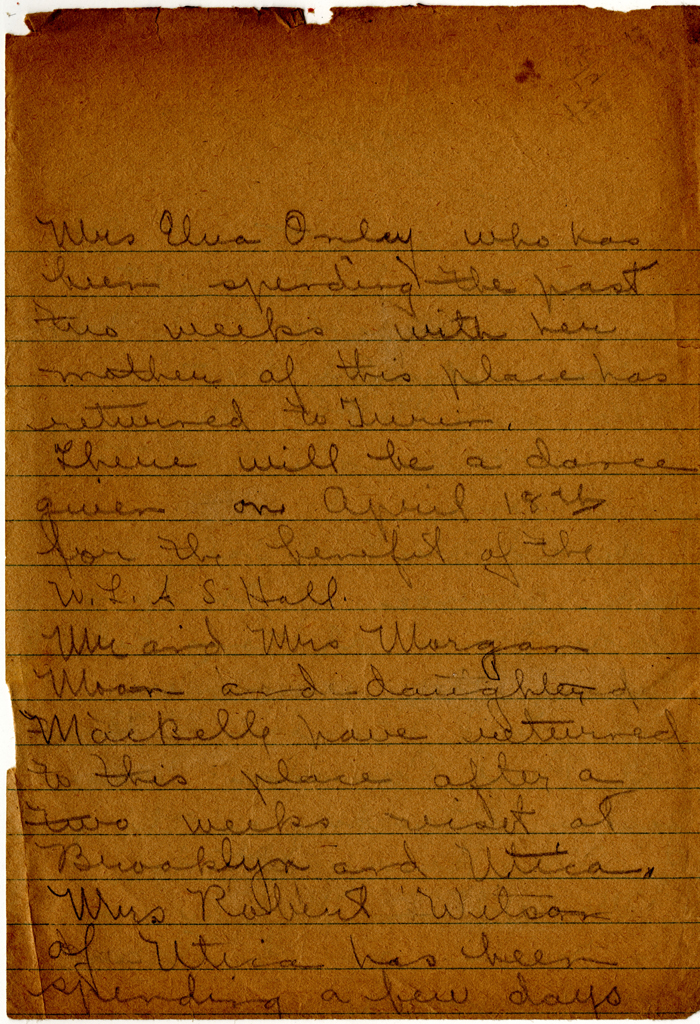 Mrs Elva Onley who has
been spending the past
two weeks with her
mother of this place has
returned to Turin.
There will be a dance
given on April 18th
for the benefit of the
W. L. A S Hall.
Mr and Mrs Morgan
Moon and daughter
have returned
to this place after a
two weeks visit at
Brooklyn and Utica,
Mrs Robert Wilson
of Utica has been
spending a few days